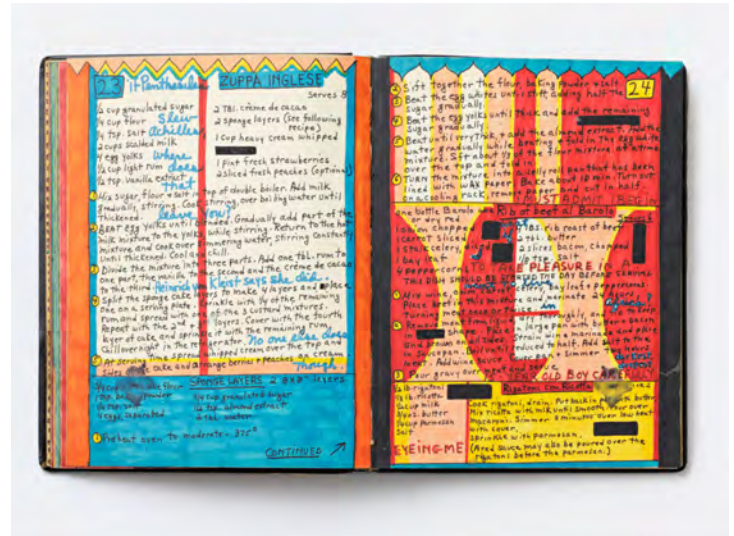 23
ZUPPA INGLESE
Serves 8
If Penthesilea
Slew
Achilles
Where
does
that
leave you?
½ cup granulated sugar
¼ cup flour
¼ tsp. salt
2 cups scalded milk
4 egg yolks
½ cup light rum
½ tsp. vanilla extract
2 Tbl. crème de cacao
2 sponge layers (see following
recipe)
1 cup heavy cream whipped
1 pint fresh strawberries
2 sliced fresh peaches (optional)
1 Mix sugar, flour + salt in top of double boiler. Add milk
gradually, stirring. Cook stirring, over boiling water until
thickened.
2 Beat egg yolks until blended. Gradually add part of the
milk mixture to the yolks, while stirring. Return to the hot
mixture, and cook over simmering water, stirring constantly
until thickened. Cool and chill.
3 Divide the mixture into three parts. Add one tbl. rum to
one part, the vanilla to the second and the crème de cacao
to the third.
Heinrich von Kleist says she did.
4 Split the sponge cake layers to make 4 layers and place
one on a serving plate. Sprinkle with ¼ of the remaining
rum and spread with one of the 3 custard mixtures.
Repeat with the 2nd + 3rd layers. Cover with the fourth
layer of cake and sprinkle with the remaining rum.
Chill overnight in the refrigerator.
No one else does
Though
5 At serving time spread whipped cream over the top and
sides of cake and arrange berries + peaches on cream
SPONGE LAYERS 2 8x8" layers
cake flour
baking powder
¼ tsp. salt
4 eggs, separated
¾ cup granulated sugar
½ tsp. almond extract
¼ cup water
1 Preheat oven to moderate - 375°
CONTINUED
24
2 Sift together the flour, baking powder + salt
3 Beat the egg whites until stiff, adding half the
sugar gradually.
4 Beat the egg yolks until thick and add the remaining
sugar gradually.
5 Beat until very thick, + add the almond extract. Add the
water gradually while beating + fold in the egg white
mixture. Sift about ¼ of the flour mixture at a time
over the top and fold in.
6 Turn the mixture into a jelly roll pan that has been
lined with wax paper. Bake about 18 min. Turn out
on a cooling rack, remove paper and cut in half.
I MUST ADMIT I BEGIN
Rib of beef al Barolo
one bottle Barolo
or dry red
1 onion chopped
1 carrot sliced
1 stalk celery,
1 bay leaf
4 peppercorns
4 lbs. rib roast of beef
2 tbl. butter
2 slices bacon, chopped
½ tsp. salt
TO TAKE PLEASURE IN A
THIS DISH SHOULD BE STARTED THE DAY BEFORE SERVING
1 Mix wine, onion, carrot, celery, bay leaf + peppercorns.
Place beef in this mixture and marinate 24 hours.
Turning meat once or twice
in
Africa?
2 Remove meat from liquid
a large pan with butter + bacon
and brown on all sides. Strain the marinade and place
in saucepan. Boil until reduced to half. Add salt to the
meat. Add wine sauce
simmer hours
3 Pour gravy over meat and serve
SEXY OLD BOY CAREFULLY
Rigatoni Con Ricotta
1 lb. rigatoni
½ lb. ricotta
½ cup milk
4 oz. butter
¼ cup parmesan
Salt
Cook rigatoni, drain. Put back in pan with butter
Mix ricotta with milk until smooth. Pour over
macaroni. Simmer 5 minutes over low heat
with cover.
Sprinkle with parmesan.
(A red sauce may also be poured over the
rigatoni before the parmesan.)
EYEING ME